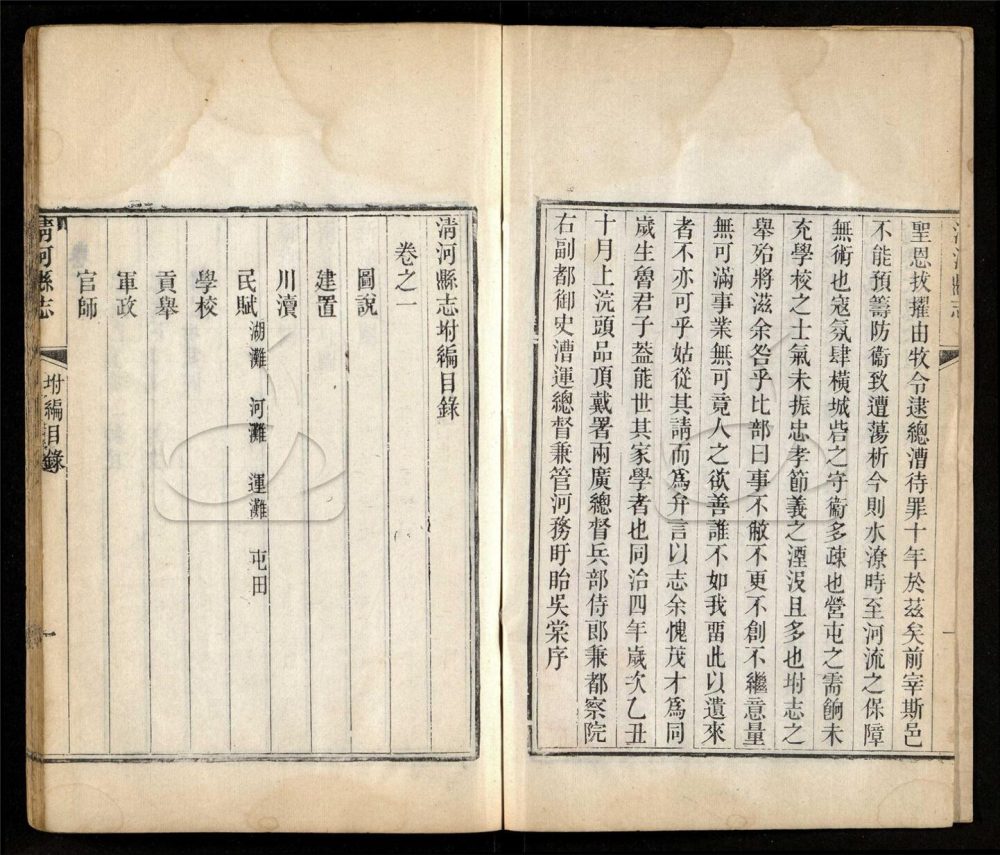 聖恩拔擢由牧令逮總漕待罪十年於茲矣前宰斯邑
不能預籌防衞致遭蕩析今則水潦時至河流之保障
無術也寇氛肆橫城砦之守衞多疎也營屯之需餉未
充學校之士氣未振忠孝節義之湮沒且多也坿志之
舉殆將滋余咎乎比部曰事不敝不更不創不繼意量
無可滿事業無可竟人之欲善誰不如我畱此以遺來
者不亦可乎姑從其請而爲弁言以志余愧茂才爲同
歲生魯君子葢能世其家學者也同治四年歲次乙丑
十月上浣頭品頂戴署兩廣總督兵部侍郎兼都察院
右副都御史漕運總督兼管河務盱眙吳棠序
清河縣志坿編目錄
卷之一
圖說
建置
川瀆
民賦 湖灘 河灘 運灘 屯田
學校
貢舉
軍政
官師
清河縣志
坿編目錄
一